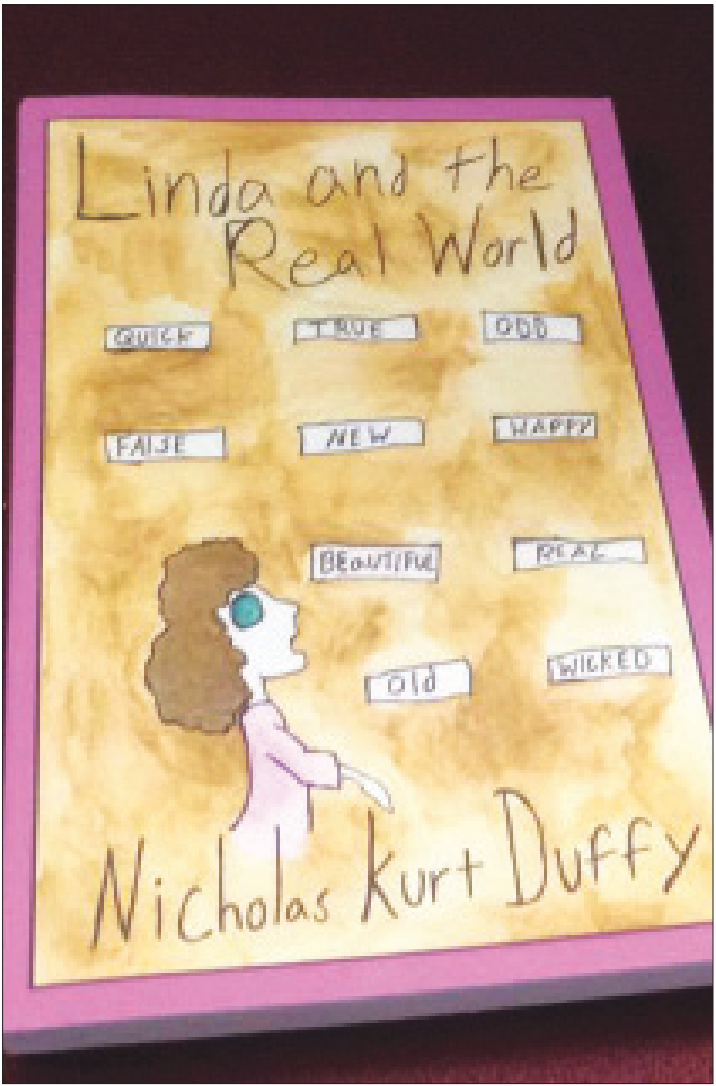 Linda and the
Real World
QUICK TRUE ODD
FALSE NEW HAPPY
BEAUTIFUL REAL
Old WICKED
Nicholas Kurt Duffy